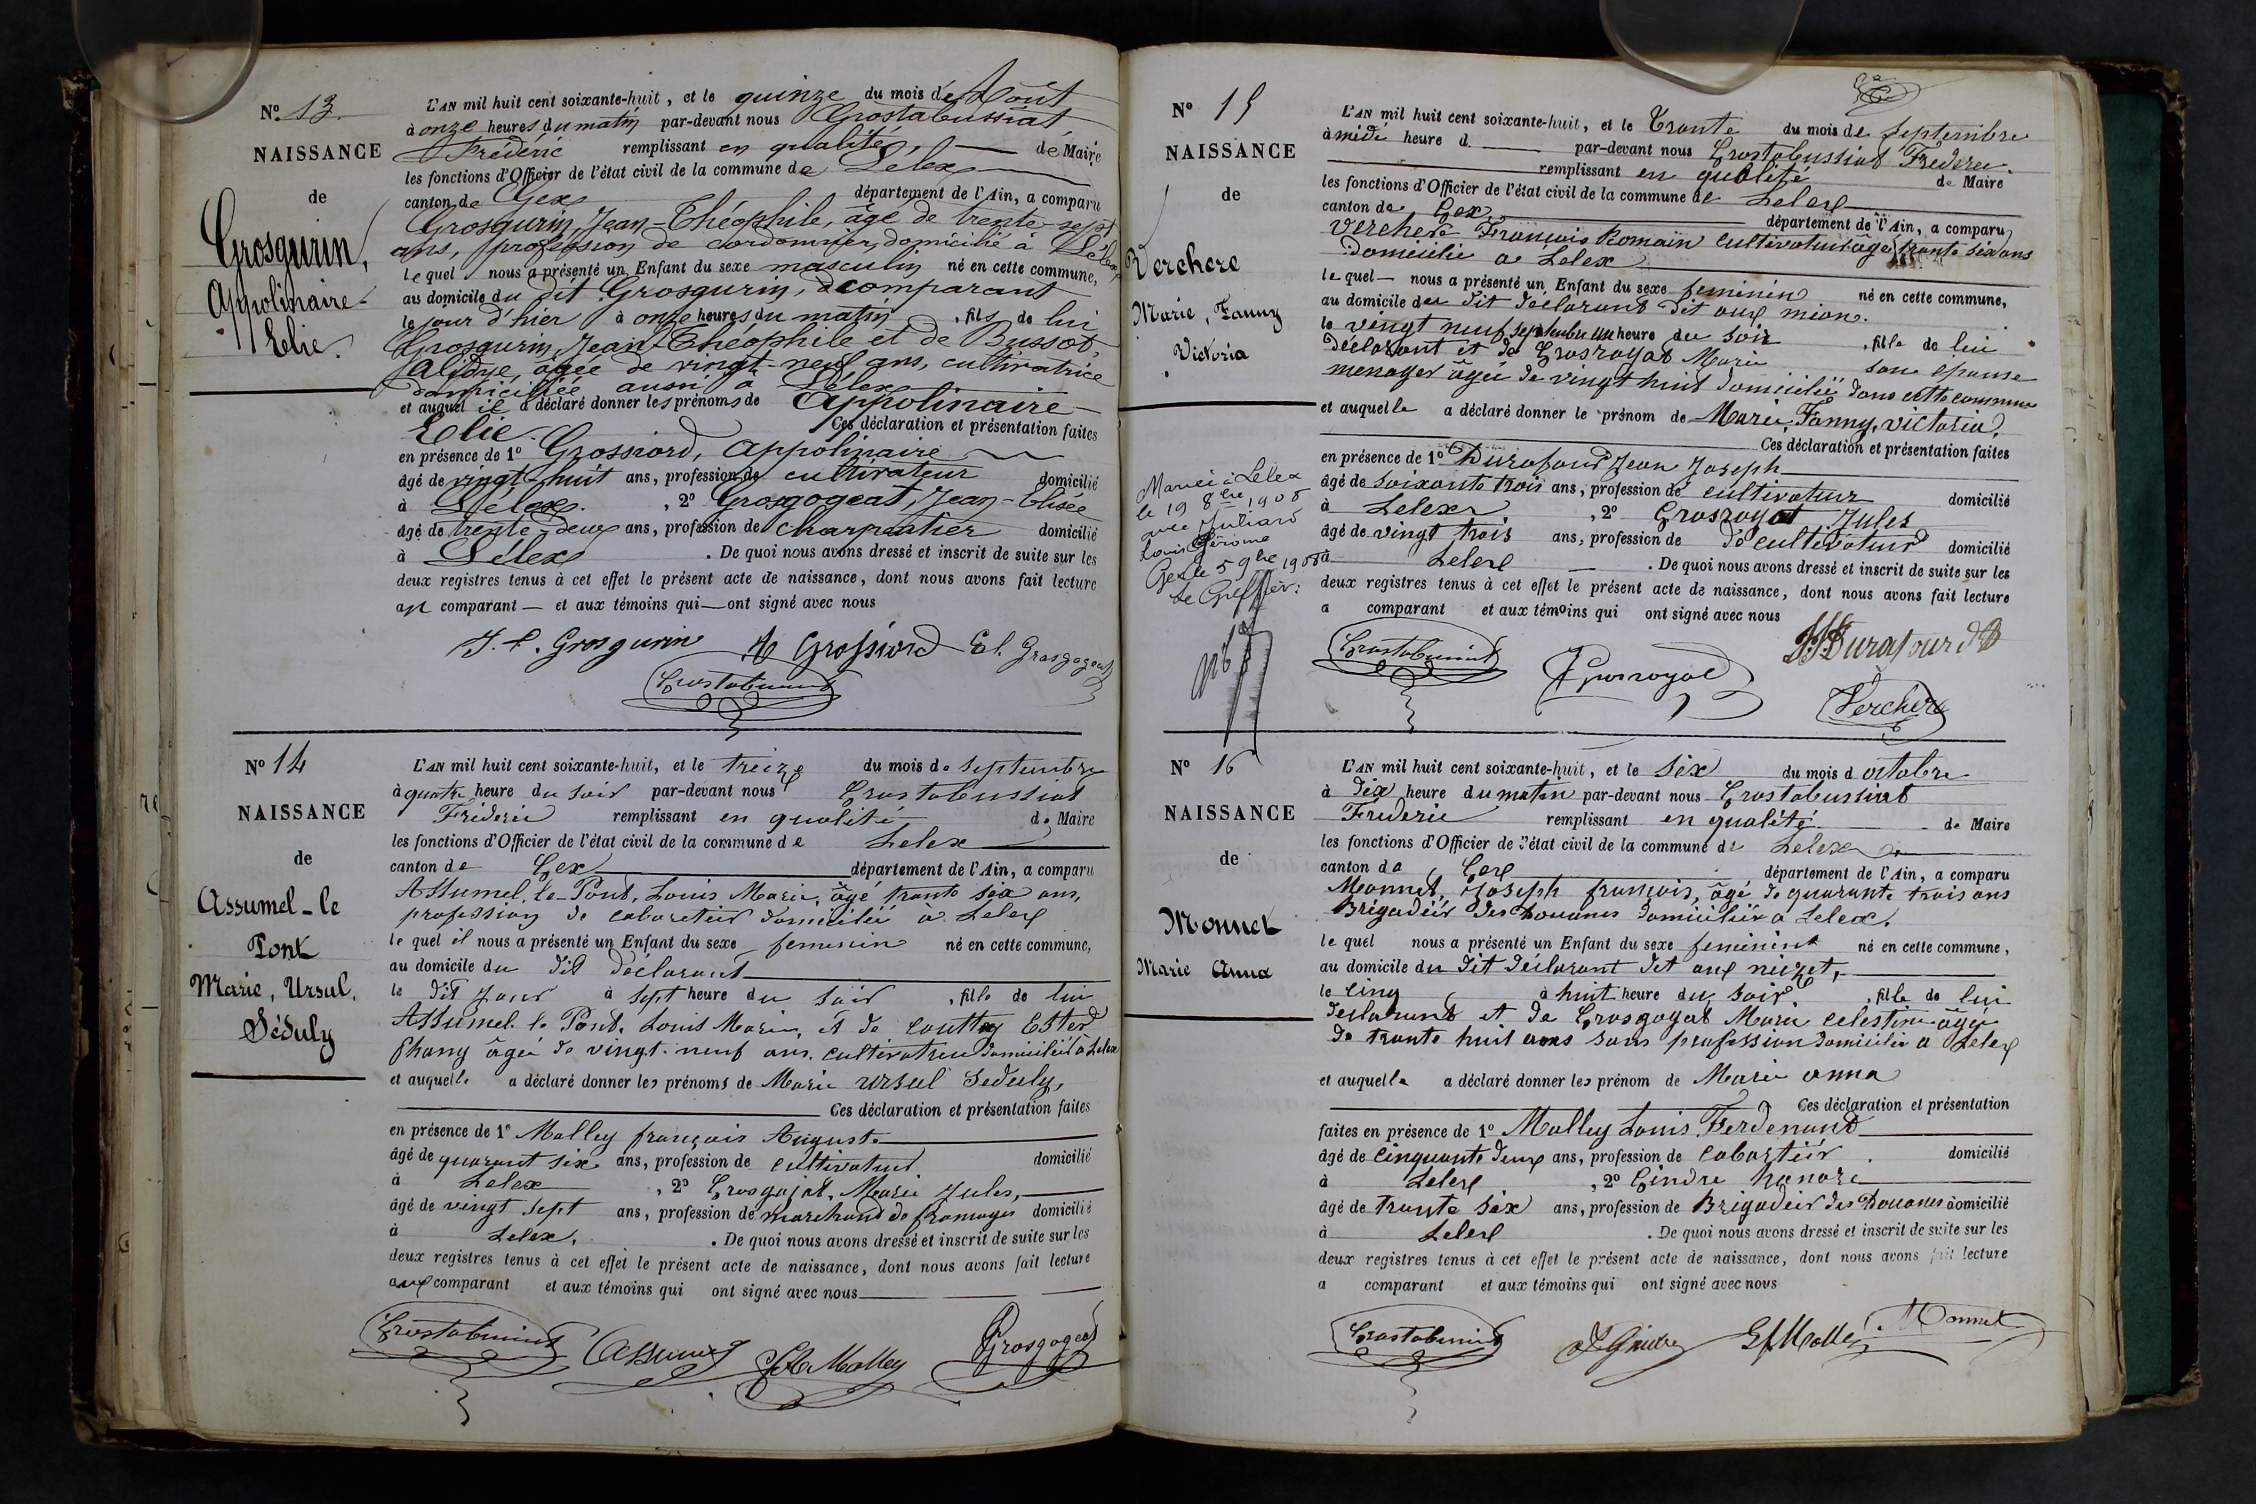 N° 13.
NAISSANCE
de
Grosgurin,
Appolinaire
Elie.
L'AN mil huit cent soixante-huit, et le quinze du mois de Août
à onze heures du matin par-devant nous Grostabussiat
Frédéric remplissant en qualité de Maire
les fonctions d'Officier de l'état civil de la commune de Lélex
canton de Gex département de l'Ain, a comparu
Grosgurin, Jean-Théophile, âgé de trente-sept
ans, profession de cordonnier, domicilié à Lélex
lequel nous a présenté un Enfant du sexe masculin né en cette commune,
au domicile du dit Grosgurin, comparant
le jour d'hier à onze heures du matin, fils de lui
Grosgurin, Jean-Théophile et de Bussot,
âgée de vingt-neuf ans, cultivatrice
domiciliée aussi à Lélex
et auquel il a déclaré donner les prénoms de Appolinaire
Elie. Ces déclaration et présentation faites
en présence de 1° Grossiord, Appolinaire
âgé de vingt-huit ans, profession de cultivateur domicilié
à Lélex. , 2° Grosgogeat, Jean-Elisée
âgé de trente-deux ans, profession de charpentier domicilié
à Lélex . De quoi nous avons dressé et inscrit de suite sur les
deux registres tenus à cet effet le présent acte de naissance, dont nous avons fait lecture
au comparant — et aux témoins qui — ont signé avec nous
J. t. Grosgurin A Grossiord El. Grosgogeat
Grostabussiat
N° 14
NAISSANCE
de
Assumel-le
Pont
Marie, Ursul.
Séduly
L'AN mil huit cent soixante-huit, et le treize du mois de septembre
à quatre heure du soir par-devant nous Grostabussiat
Fréderic remplissant en qualité de Maire
les fonctions d'Officier de l'état civil de la commune de Lelex
canton de Gex département de l'Ain, a comparu
Assumel. le Pont, Louis Marie, âgé trante six ans,
profession de cabaretier domicilié a Lelex
lequel il nous a présenté un Enfant du sexe femenin né en cette commune,
au domicile du dit déclarant
le dit jour à sept heure du soir , fille de lui
Assumel. le Pont. Louis Marie, et de Ester
Phany âgée de vingt-neuf ans. cultivatrice domiciliée à Lelex
et auquelle a déclaré donner les prénoms de Marie Ursul Seduly,
Ces déclaration et présentation faites
en présence de 1° Malley françois August
âgé de quarant six ans, profession de cultivateur domicilié
à Lelex , 2° Grosgojat, Marie Jules,
âgé de vingt sept ans, profession de marchand de fromages domicilié
à Lelex, . De quoi nous avons dressé et inscrit de suite sur les
deux registres tenus à cet effet le présent acte de naissance, dont nous avons fait lecture
aux comparant et aux témoins qui ont signé avec nous
Grostabussiat Assumel Malley Grosgogeat
N° 15
NAISSANCE
de
Verchere
Marie, Fanny
Victoria
Marié à Lelex
le 19 8bre 1908
avec Juliard
Louis Jérome
Gex le 5 9bre 1908
Le Greffier:
L'AN mil huit cent soixante-huit, et le Trante du mois de septembre
à midi heure d par-devant nous Grostabussiat Fréderic
remplissant en qualité de Maire
les fonctions d'Officier de l'état civil de la commune de Lelex
canton de Gex département de l'Ain, a comparu
Verchere François Romain cultivateur âgé trante six ans
Domicilié a Lelex
lequel — nous a présenté un Enfant du sexe feminin né en cette commune,
au domicile du dit déclarant dit aux mions.
le vingt neuf septembre un heure du soir , fille de lui
déclarant et de Grosroyat Marie sone épouse
menager âgée de vingt huit domiciliée dans cette commune
et auquelle a déclaré donner le prénom de Marie, Fanny, Victoria,
Ces déclaration et présentation faites
en présence de 1° Durafourd Jean Joseph
âgé de soixante trois ans, profession de cultivateur domicilié
à Lelex , 2° Grosroyat Jules
âgé de vingt trois ans, profession de de cultivateur domicilié
à Lelex . De quoi nous avons dressé et inscrit de suite sur les
deux registres tenus à cet effet le présent acte de naissance, dont nous avons fait lecture
a comparant et aux témoins qui ont signé avec nous
Grostabussiat Grosroyat JJ Durafourd
Verchere
N° 16
NAISSANCE
de
Monnet
Marie Anna
L'AN mil huit cent soixante-huit, et le six du mois d octobre
à dix heure du matin par-devant nous Grostabussiat
Fréderic remplissant en qualité de Maire
les fonctions d'Officier de l'état civil de la commune de Lelex
canton de Gex département de l'Ain, a comparu
Monnet, Joseph françois, âgé de quarante trois ans
Brigadeir des Douanes domicilié a Lelex.
lequel nous a présenté un Enfant du sexe feminin né en cette commune,
au domicile du dit déclarant
le cinq à huit heure du soir , fille de lui
déclarant et de Grosgogat Marie celestine âgée
de trante huit ans sans profession domiciliée a Lelex
et auquelle a déclaré donner les prénom de Marie anna
Ces déclaration et présentation
faites en présence de 1° Malley Louis Ferdenand
âgé de cinquante deux ans, profession de cabartier domicilié
à Lelex , 2° Gindre honore
âgé de trante six ans, profession de Brigadeir des Douanes domicilié
à Lelex . De quoi nous avons dressé et inscrit de suite sur les
deux registres tenus à cet effet le présent acte de naissance, dont nous avons fait lecture
a comparant et aux témoins qui ont signé avec nous
Grostabussiat Gindre Malley Monnet